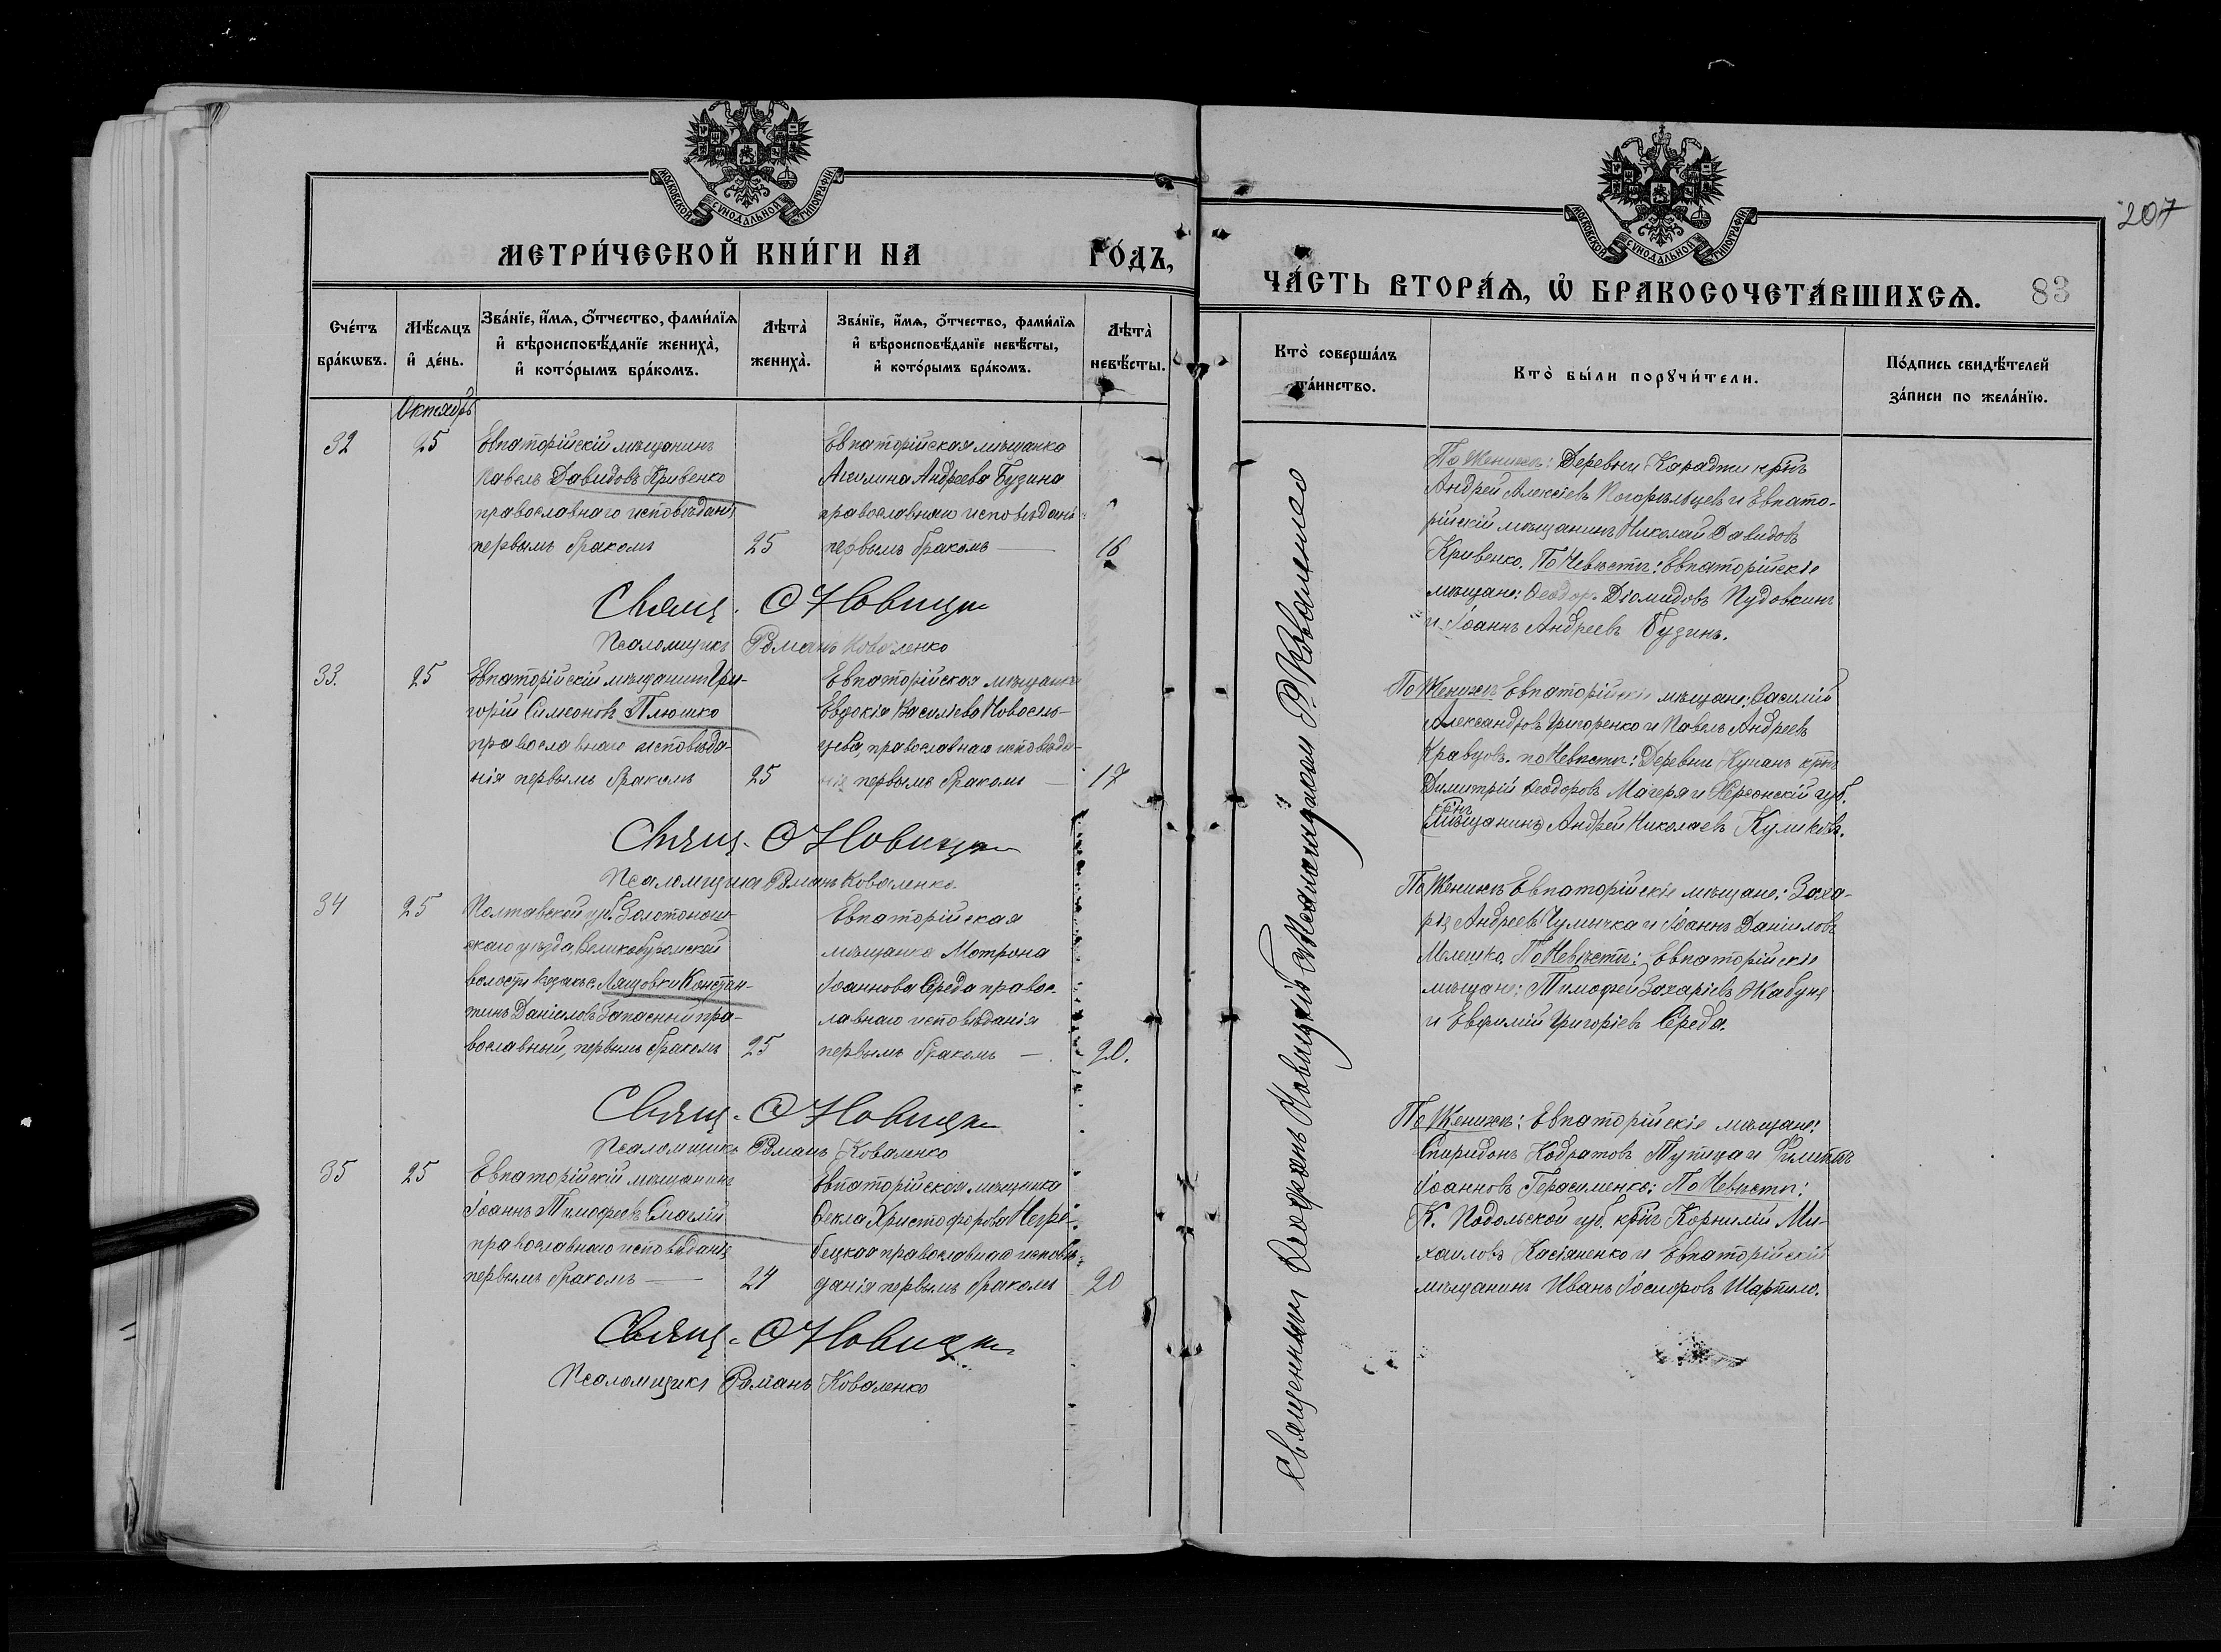 МОСКОВСКОЙ СѴНОДАЛЬНОЙ ТИПОГРАФІИ
МЕТРИ́ЧЕСКОЙ КНИ́ГИ НА ГО́ДЪ,
Сче́тъ бра́кѡвъ.
Мѣ́сяцъ и҆ де́нь.
Зва́нїе, и҆́мѧ, ѻ҆́тчество, фами́лїѧ
и҆ вѣроисповѣ́данїе жениха̀,
и҆ кото́рымъ бра́комъ.
Лѣта̀ жениха̀.
Зва́нїе, и҆́мѧ, ѻ҆́тчество, фами́лїѧ
и҆ вѣроисповѣ́данїе невѣ́сты,
и҆ кото́рымъ бра́комъ.
Лѣта̀ невѣ́сты.
Октябрь
32 25
Евпаторійскій мѣщанинъ
Павелъ Давидовъ Кривенко
православнаго исповѣданія
первымъ бракомъ 25
Евпаторійская мѣщанка
Акилина Андреева Бузина
православнаго исповѣдані
первымъ бракомъ — 16
Свящ. Ѳ Новицкі
Псаломщикъ Романъ Коваленко
33. 25
Евпаторійскій мѣщанинъ Гри-
горій Симеоновъ Плюшко
православнаго исповѣда-
нія первымъ бракомъ 25
Евпаторійская мѣщанка
Евдокія Василіева Новосель-
цева, православнаго исповѣда-
нія первымъ бракомъ — 17
Свящ. Ѳ Новицкі
Псаломщикъ Романъ Коваленко.
34 25
Полтавской губ. Золотонош-
скаго уѣзда, Великобуромской
волости козакъ с. Лящовки Констан-
тинъ Даніиловъ Запасный пра-
вославный, первымъ бракомъ 25
Евпаторійская
мѣщанка Мотрона
Іоаннова Середа правос-
лавнаго исповѣданія
первымъ бракомъ — 20.
Свящ. Ѳ Новицкі
Псаломщикъ Романъ Коваленко
35 25
Евпаторійскій мѣщанинъ
Іоаннъ Тимофеевъ Смаглій
православнаго исповѣданія
первымъ бракомъ — 24
Евпаторійская мѣщанка
Ѳекла Христофорова Негре-
бецкая православнаго исповѣ-
данія первымъ бракомъ 20
Свящ. Ѳ Новицкі
Псаломщикъ Романъ Коваленко
МОСКОВСКОЙ СѴНОДАЛЬНОЙ ТИПОГРАФІИ
207
ЧА́СТЬ ВТОРА́Ѧ, Ѡ҆ БРАКОСОЧЕТА́ВШИХСѦ. 83
Кто̀ соверша́лъ
та́инство.
Кто̀ бы́ли порꙋчи́тели.
По́дпись свидѣ́телей
за́писи по жела́нїю.
Священникъ Ѳеофанъ Новицкій съ Псаломщикомъ Р. Коваленко
По Женихѣ: Деревни Караджи крⷭнъ
Андрей Алексіевъ Погорѣльцевъ и Евпато-
рійскій мѣщанинъ Николай Давидовъ
Кривенко. По Невѣстѣ: Евпаторійскіе
мѣщане: Ѳеодоръ Діомидовъ Пудовкинъ
и Іоаннъ Андреевъ Бузинъ.
По Женихѣ Евпаторійскіе мѣщане: Василій
Александровъ Григоренко и Павелъ Андреевъ
Кравцовъ. по Невѣстѣ: Деревни Кунанъ крⷭнъ
Димитрій Ѳеодоровъ Магеря и Херсонскій губ.
крнъ
(мѣщанинъ) Андрей Николаевъ Куликовъ.
По Женихѣ Евпаторійскіе мѣщане: Заха-
рія Андреевъ Чумичка и Іоаннъ Даніиловъ
Мелешко. По Невѣстѣ: Евпаторійскіе
мѣщане: Тимофей Захаріевъ Жабуня
и Евфимій Григоріевъ Середа.
По Женихѣ: Евпаторійскіе мѣщане:
Спиридонъ Кодратовъ Тупица и Филиппъ
Іоанновъ Герасименко: По Невѣстѣ:
К. Подольской губ. крⷭнъ Корнилій Ми-
хаиловъ Касіяненко и Евпаторійскій
мѣщанинъ Иванъ Іосифовъ Шарпило.